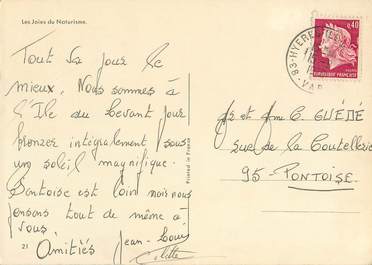 Les Joies du Naturisme.
Tout va pour le
mieux. Nous sommes à
l'Ile du Levant pour
bronzer intégralement sous
un soleil magnifique.
Pontoise est loin mais nous
pensons tout de même à
vous.
Amitiés Jean-Louis
Colette
21
Printed in France
83-HYERES
VAR
0,40
REPUBLIQUE FRANÇAISE
Mr et Mme C. GUÉDÉ
rue de la Coutellerie
95 - PONTOISE